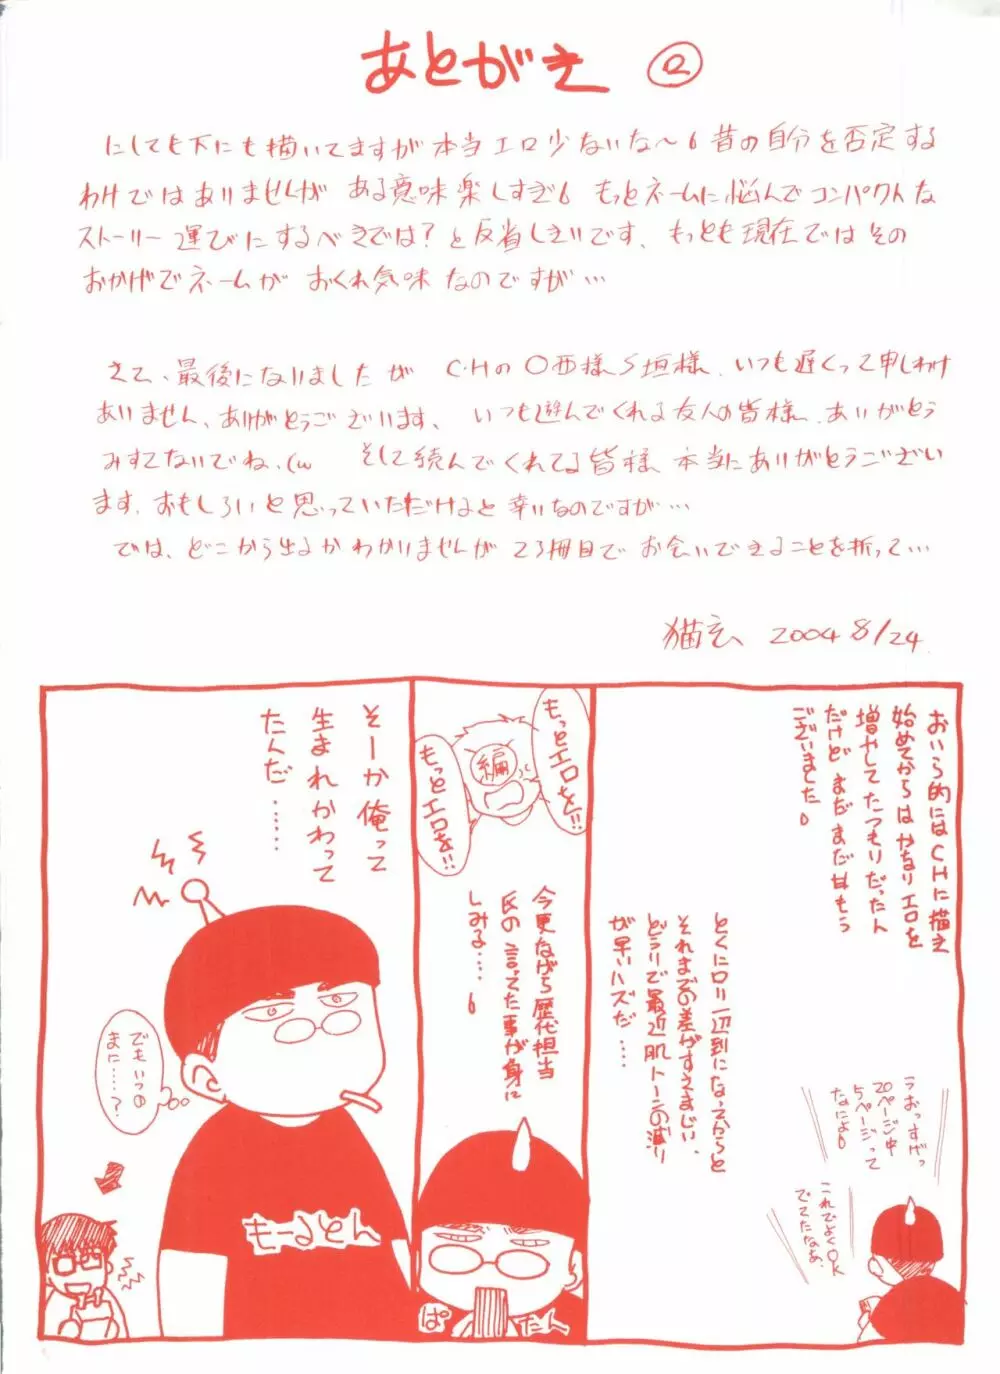 あとがき ②
にしても下にも描いてますが本当エロ少ないな〜6 昔の自分を否定する
わけではありませんが ある意味楽しすぎ6 もっとネームに悩んでコンパクトな
ストーリー運びにするべきでは？と反省しきりです、もっとも現在ではその
おかげでネームが おくれ気味なのですが…
さて、最後になりましたが C・Hの〇西様 S垣様、いつも遅くって申しわけ
ありません、ありがとうございます、いつも遊んでくれる友人の皆様、ありがとう
みすてないでね、(w そして読んでくれてる皆様 本当にありがとうござい
ます、おもしろいと思っていただけると幸いなのですが…
では、どこから出るかわかりませんが 23冊目で お会いできることを祈って…
猫玄 2004 8/24
おいら的にはCHに描き
始めてからはかなりエロを
増やしてたつもりだったん
だけど まだまだ甘もう
ございました6
うおっすげっ
20ページ中
5ページって
なによ6
これでよくOK
でてたなぁ、
とくにロリ一辺到になってからと
それまでの差がすさまじい、
どうりで最近肌トーンの減り
が早いハズだ……
もっとエロを!!
編
もっとエロを!!
今更ながら歴代担当
氏の言ってた事が身に
しみる……6
ぱたん
そーか俺って
生まれかわって
たんだ……
でもいつの
まに……?
もーるとん